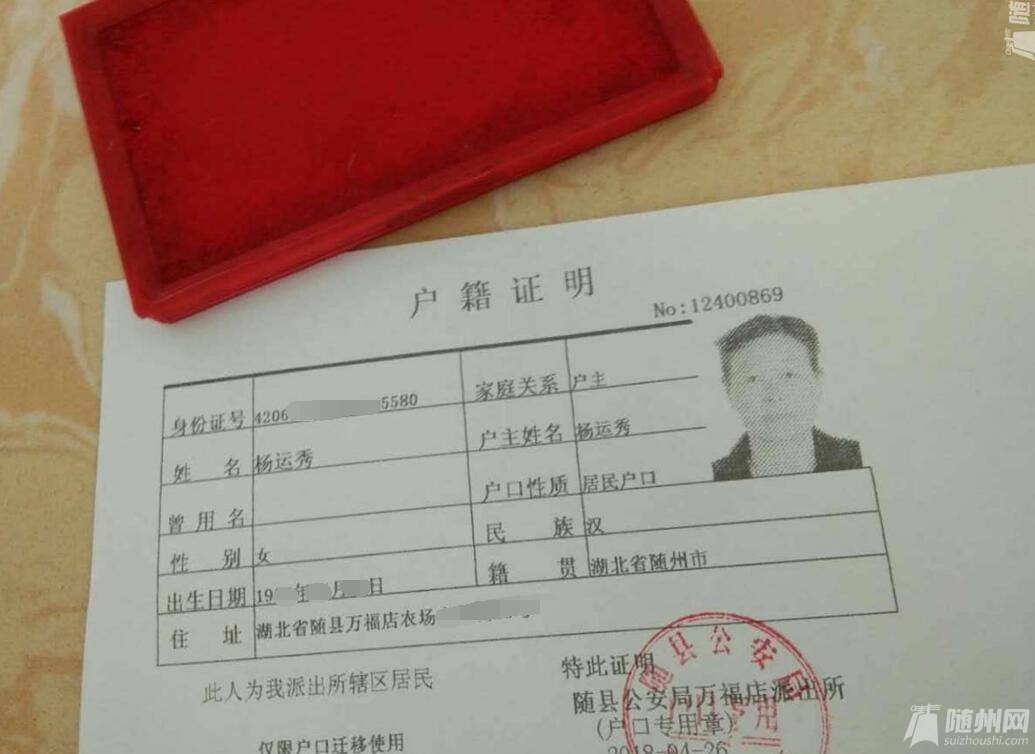 户籍证明
No:12400869
身份证号 4206 5580 家庭关系 户主
姓名 杨运秀 户主姓名 杨运秀
曾用名 户口性质 居民户口
性别 女 民族 汉
出生日期 19 年 月 日 籍贯 湖北省随州市
住址 湖北省随县万福店农场
此人为我派出所辖区居民
特此证明
随县公安局万福店派出所
(户口专用章)
2018-04-26
仅限户口迁移使用
随县公安局
随州网
suizhoushi.com